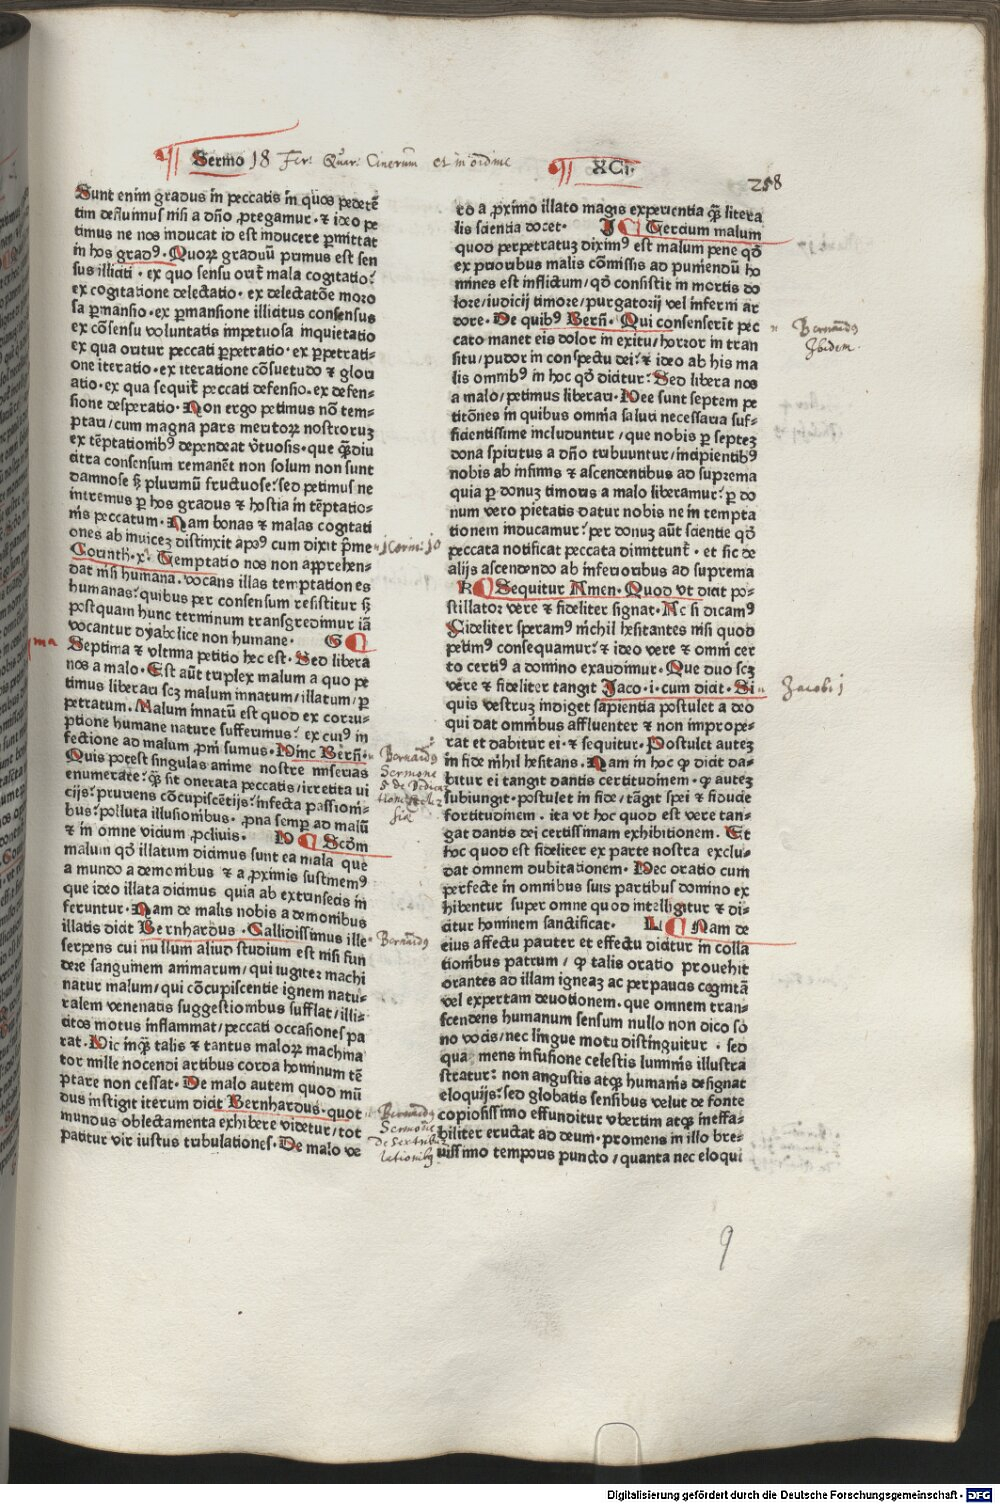 Sermo 18 Fer: Quar: Cinerum et in ordine XCi.
258
Sunt enim gradus in peccatis in quos pedetē
tim defluimus nisi a dño ꝓtegamur. ⁊ ideo pe
timus ne nos inducat id est inducere ꝑmittat
in hos gradꝰ. Quoꝝ graduū primus est sen
sus illiciti. ex quo sensu orit᷑ mala cogitatio?
ex cogitatione delectatio. ex delectatōe moro
sa ꝑmansio. ex ꝑmansione illicitus consensus
ex cōsensu voluntatis impetuosa inquietatio
ex qua oritur peccati ꝑpetratio. ex ꝑpetrati-
one iteratio. ex iteratione cōsuetudo ⁊ glori
atio. ex qua sequit᷑ peccati defensio. ex defen-
sione desperatio. Non ergo petimus nō tem-
ptari/cum magna pars meritoꝝ nostroruꝫ
ex tēptationibꝰ dependeat v̄tuosis. que qȝ̄diu
citra consensum remanēt non solum non sunt
damnose sꝫ plurimū fructuose? sed petimus ne
intremus ꝑ hos gradus ⁊ hostia in tēptatio-
nis peccatum. Nam bonas ⁊ malas cogitati
ones ab inuiceꝫ distinxit apoꝰ cum dixit p̄me
Corinth. x. Temptatio nos non apprehen-
dat nisi humana. vocans illas temptationes
humanas? quibus per consensum resistitur sꝫ
postquam hunc terminum transgredimur iā
vocantur dyabolice non humane. G
Septima ⁊ vltima petitio hec est. Sed libera
nos a malo. Est aūt triplex malum a quo pe
timus liberari scꝫ malum innatum/illatum/ꝑ
petratum. Malum innatū est quod ex corru-
ptione humane nature sufferimus? ex cuiꝰ in
fectione ad malum ꝓni sumus. Hinc Berñ.
Quis potest singulas anime nostre miserias
enumerare? qȝ̄ sit onerata peccatis/irretita vi
cijs? pruriens cōcupiscētijs? infecta passioni-
bus? polluta illusionibus. ꝓna semꝑ ad malū
⁊ in omne vicium ꝓcliuis. H Scdm̄
malum qd̄ illatum dicimus sunt ea mala que
a mundo a demonibus ⁊ a ꝓximis sustinemꝰ
que ideo illata dicimus quia ab extrinsecis in
feruntur. Nam de malis nobis a demonibus
illatis dicit Bernhardus. Callidissimus ille
serpens cui nullum aliud studium est nisi fun
dere sanguinem animarum/qui iugiter machi
natur malum/qui cōcupiscentie ignem natu-
ralem venenatis suggestionibus sufflat/illi-
citos motus inflammat/peccati occasiones pa
rat. Hic inqȝ talis ⁊ tantus maloꝝ machina
tor mille nocendi artibus corda hominum tē
ptare non cessat. De malo autem quod mū
dus instigit iterum dicit Bernhardus. quot
mundus oblectamenta exhibere videtur/tot
patitur vir iustus tribulationes. De malo ve
ma
1 Corin: 10
Bernardꝰ
Sermone
5 de Dedica
tione Eccle
siæ
Bernardꝰ
Bernardꝰ
Sermone
de Sex tribu
lationibꝰ
ro a ꝓximo illato magis experientia qȝ̄ litera
lis scientia docet. I Tercium malum
quod perpetratuꝫ diximꝰ est malum pene qd̄
ex prioribus malis cōmissis ad puniendū ho
mines est inflictum/qd̄ consistit in mortis do
lore/iudicij timore/purgatorij vel inferni ar
dore. De quibꝰ Berñ. Qui consenserit pec
cato manet eis dolor in exitu/horror in tran
situ/pudor in conspectu dei? ⁊ ideo ab his ma
lis omnibꝰ in hoc qd̄ dicitur? Sed libera nos
a malo/petimus liberari. Hee sunt septem pe
titōnes in quibus omnia saluti necessaria suf-
ficientissime includuntur/que nobis ꝑ septeꝫ
dona spiritus a dño tribuuntur/incipientibꝰ
nobis ab infimis ⁊ ascendentibus ad suprema
quia ꝑ donuꝫ timoris a malo liberamur? ꝑ do
num vero pietatis datur nobis ne in tempta
tionem inducamur? per donuꝫ aūt scientie qd̄
peccata notificat peccata dimittunt᷑. et sic de
alijs ascendendo ab inferioribus ad suprema
K Sequitur Amen. Quod vt dicit po-
stillator vere ⁊ fideliter signat. Ac si dicamꝰ
Fideliter speramꝰ nichil hesitantes nisi quod
petimꝰ consequamur? ⁊ ideo vere ⁊ omni cer
to certiꝰ a domino exaudimur. Que duo scꝫ
vere ⁊ fideliter tangit Jaco. i. cum dicit. Si
quis vestruꝫ indiget sapientia postulet a deo
qui dat omnibus affluenter ⁊ non imprope-
rat et dabitur ei. ⁊ sequitur. Postulet auteꝫ
in fide nihil hesitans. Nam in hoc ꝙ dicit da-
bitur ei tangit dantis certitudinem. ꝙ auteꝫ
subiungit. postulet in fide/tāgit spei ⁊ fiducie
fortitudinem. ita vt hoc quod est vere tan-
gat dantis dei certissimam exhibitionem. Et
hoc quod est fideliter ex parte nostra exclu-
dat omnem dubitationem. Hec oratio cum
perfecte in omnibus suis partibus domino ex
hibentur super omne quod intelligitur ⁊ di-
citur hominem sanctificat. L Nam de
eius affectu pariter et effectu dicitur in colla
tionibus patrum/ ꝙ talis oratio prouehit
orantes ad illam igneaꝫ ac per paucis cognitā
vel expertam deuotionem. que omnem tran-
scendens humanum sensum nullo non dico so
no vocis/nec lingue motu distinguitur. sed
quaꝫ mens infusione celestis luminis illustra
stratur? non angustis atqȝ humanis designat
eloquijs? sed globatis sensibus velut de fonte
copiosissimo effunditur vbertim atqȝ ineffa-
biliter eructat ad deum. promens in illo bre-
uissimo temporis puncto/quanta nec eloqui
Bernardꝰ
Ibidem.
Jacobi 1
9
Digitalisierung gefördert durch die Deutsche Forschungsgemeinschaft - DFG